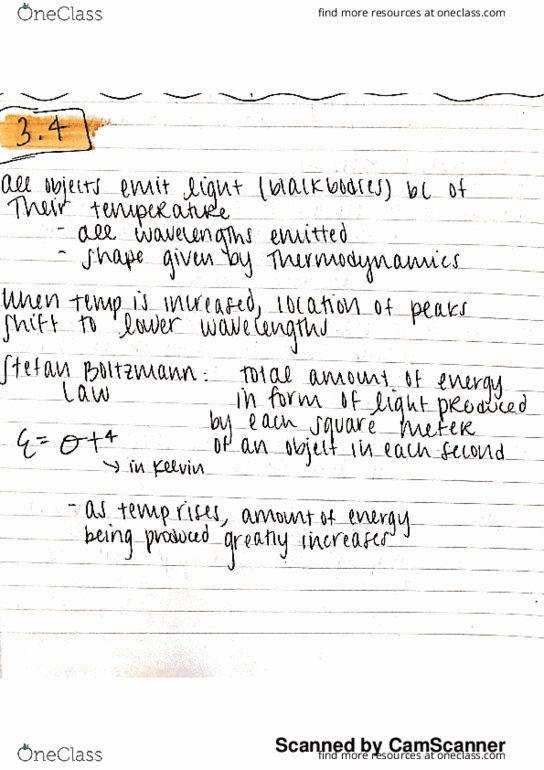 OneClass
find more resources at oneclass.com
3.4
all objects emit light (blackbodies) bc of
their temperature
- all wavelengths emitted
- shape given by thermodynamics
When temp is increased, location of peaks
shift to lower wavelengths
Stefan Boltzmann Law: total amount of energy
in form of light produced
by each square meter
of an object in each second
ε = σt⁴
↳ in kelvin
- as temp rises, amount of energy
being produced greatly increases
Scanned by CamScanner
OneClass
find more resources at oneclass.com